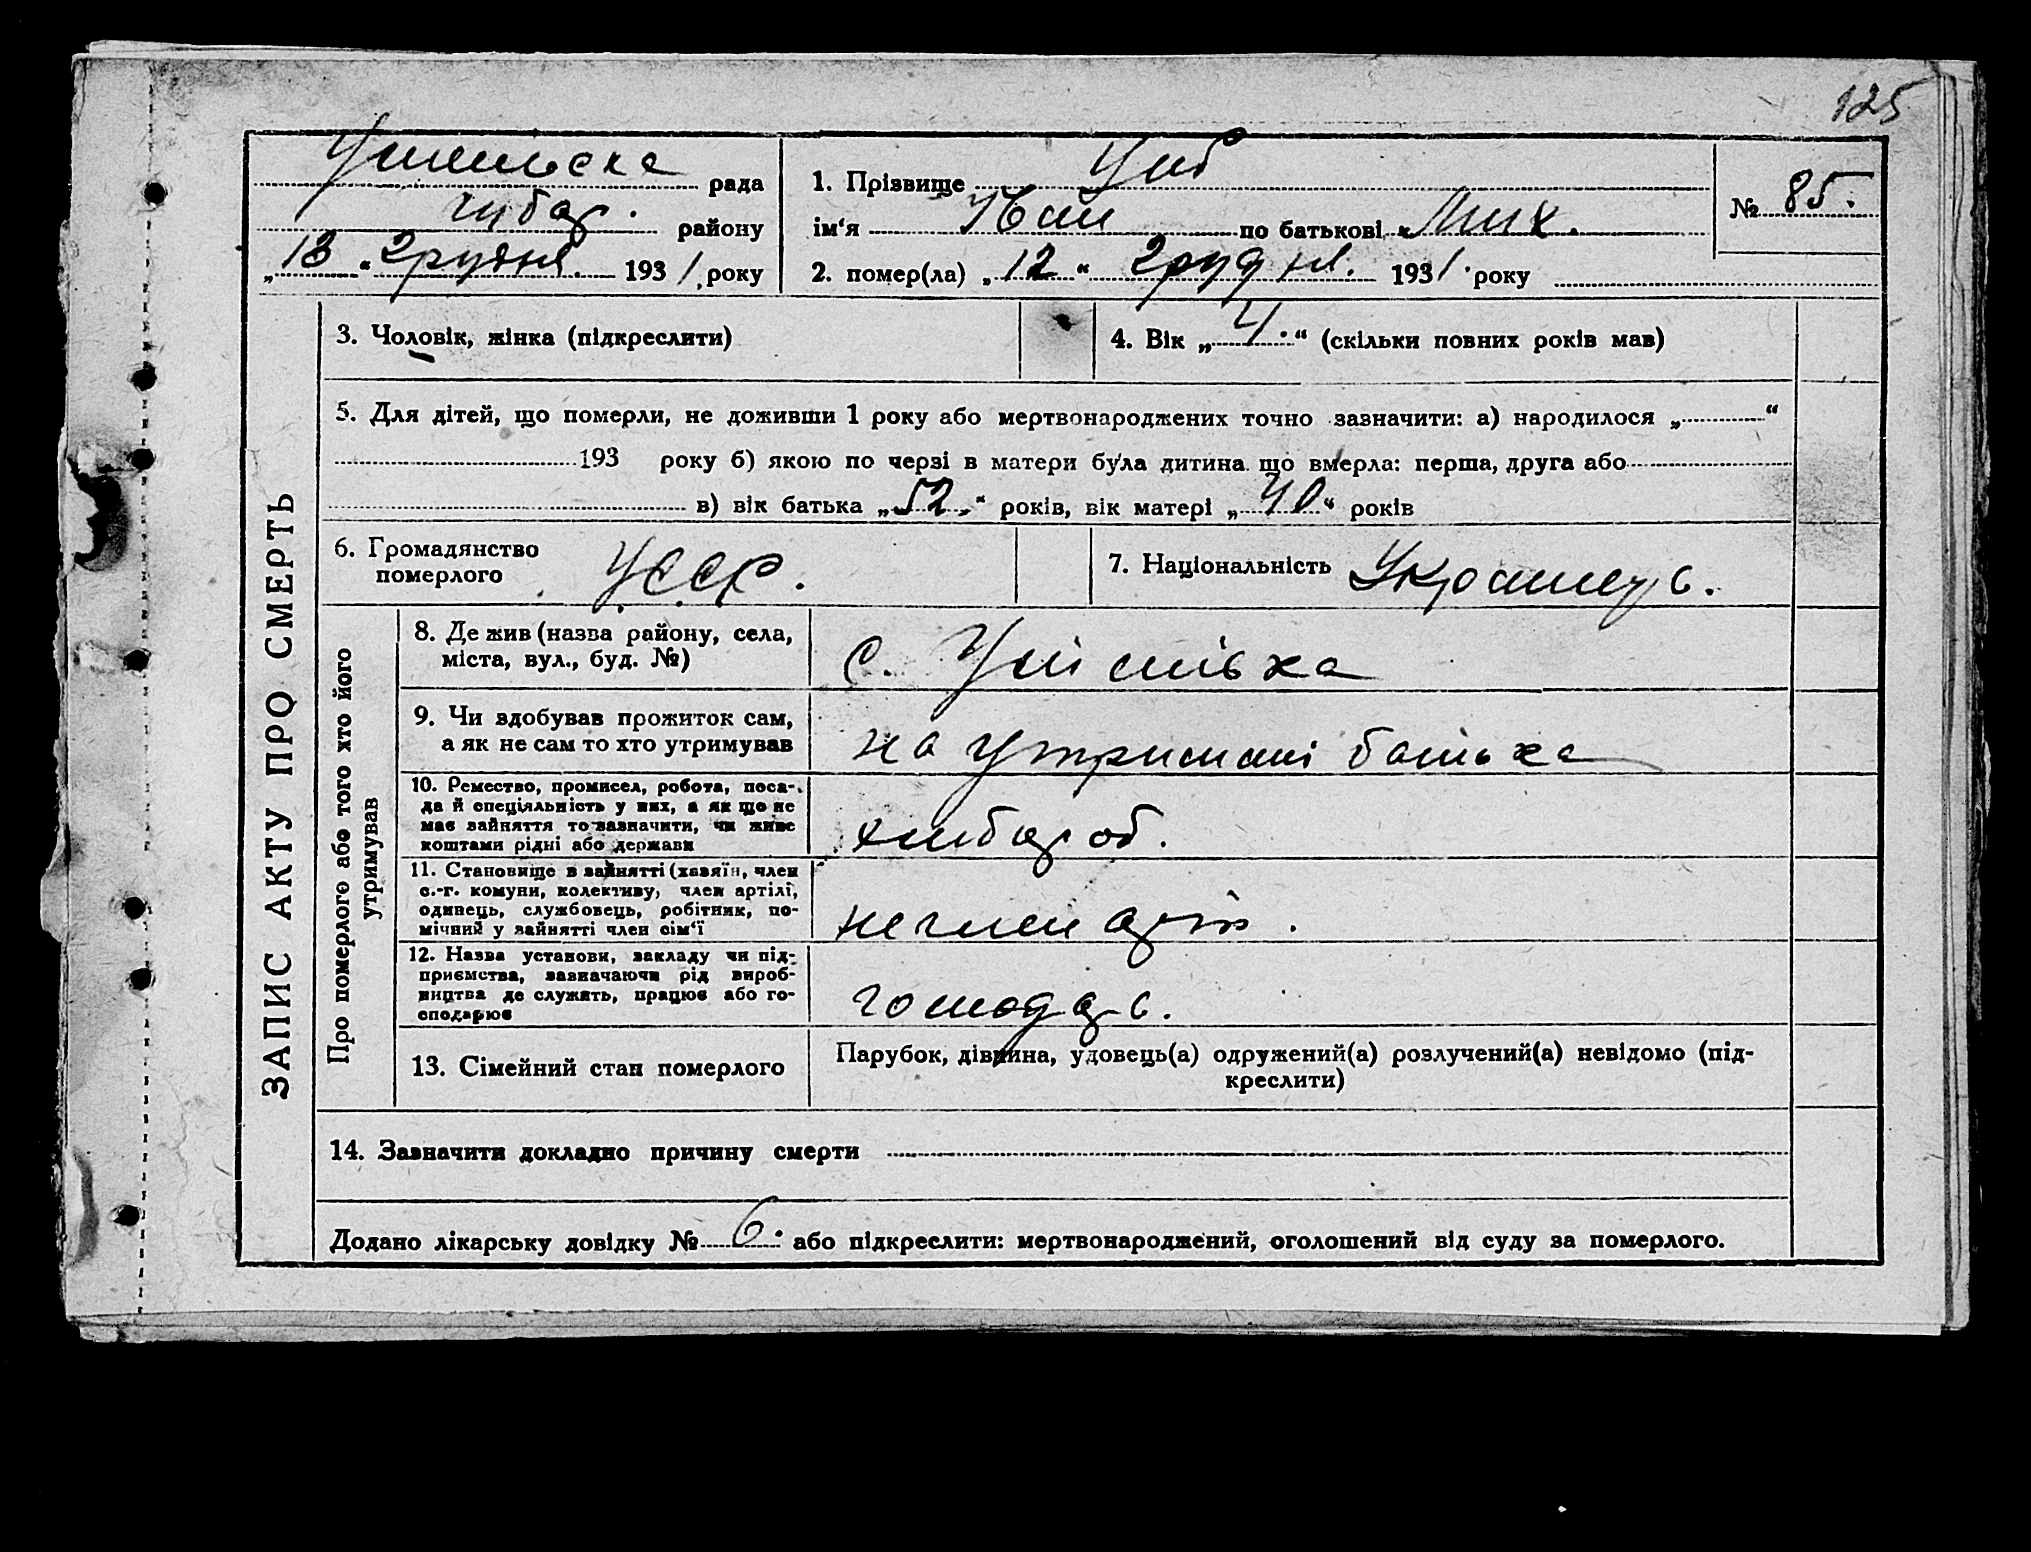 125
рада
1. Прізвище
№ 85.
чубар. району
ім‘я Іван по батькові Мих.
„13“ грудня. 1931 року
2. помер(ла) „12“ грудня. 1931 року
ЗАПИС АКТУ ПРО СМЕРТЬ
3. Чоловік, жінка (підкреслити)
4. Вік „4.“ (скільки повних років мав)
5. Для дітей, що померли, не доживши 1 року або мертвонароджених точно зазначити: а) народилося „ “
193 року б) якою по черзі в матери була дитина що вмерла: перша, друга або
в) вік батька „52.“ років, вік матері „40“ років
6. Громадянство
померлого УССР.
7. Національність Украинець.
Про померлого або того хто його
утримував
8. Де жив (назва району, села,
міста, вул., буд. №)
с.
9. Чи здобував прожиток сам,
а як не сам то хто утримував
на утримані батька
10. Ремество, промисел, робота, поса-
да й спеціяльність у них, а як що не
має зайняття то зазначити, чи живе
коштами рідні або держави
хлібороб.
11. Становище в зайнятті (хазяїн, член
с.-г. комуни, колективу, член артілі,
одинець, службовець, робітник, по-
мічний у зайнятті член сім‘ї
нечлен
12. Назва установи, закладу чи під-
приємства, зазначаючи рід вироб-
ництва де служить, працює або го-
сподарює
господар.
13. Сімейний стан померлого
Парубок, дівчина, удовець(а) одружений(а) розлучений(а) невідомо (під-
креслити)
14. Зазначити докладно причину смерти
Додано лікарську довідку № 6. або підкреслити: мертвонароджений, оголошений від суду за померлого.